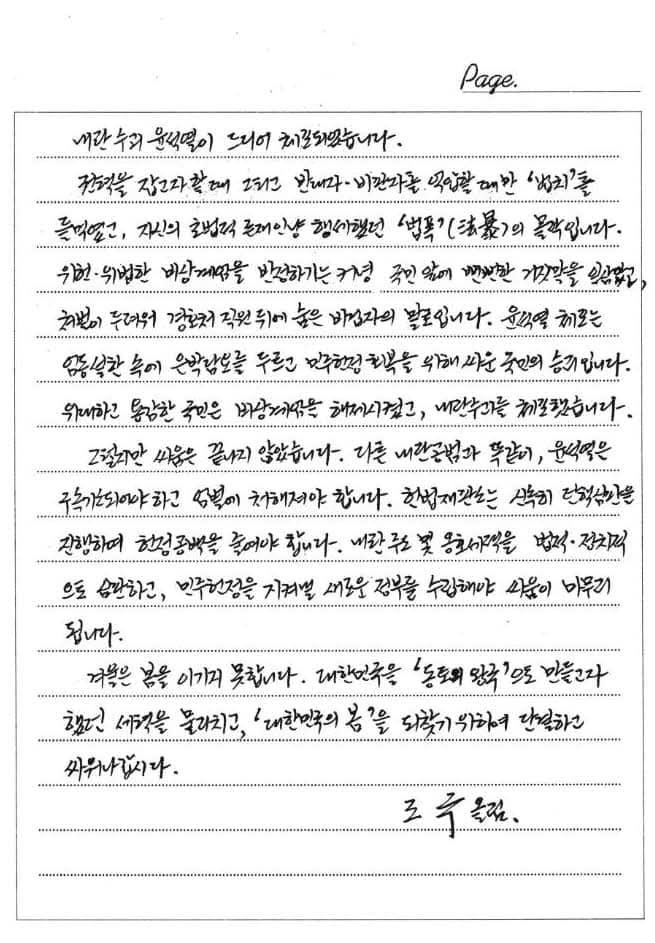 Page.
내란 수괴 윤석열이 드디어 체포되었습니다.
권력을 잡고자 할 때 그리고 반대자·비판자를 억압할 때만 '법치'를
들먹였고, 자신의 호법적 존재인양 행세했던 '법폭'(法暴)의 몰락입니다.
위헌·위법한 비상계엄을 반성하기는 커녕 국민 앞에 뻔뻔한 거짓말을 일삼았고,
처벌이 두려워 경호처 직원 뒤에 숨은 비겁자의 말로입니다. 윤석열 체포는
엄동설한 속에 은박담요를 두르고 민주헌정 회복을 위해 싸운 국민의 승리입니다.
위대하고 용감한 국민은 비상계엄을 해제시켰고, 내란수괴를 체포했습니다.
그렇지만 싸움은 끝나지 않았습니다. 다른 내란공범과 똑같이, 윤석열은
구속기소되어야 하고 엄벌에 처해져야 합니다. 헌법재판소는 신속히 탄핵심판을
진행하여 헌정공백을 줄여야 합니다. 내란 주도 및 옹호세력을 법적·정치적
으로 심판하고, 민주헌정을 지켜낼 새로운 정부를 수립해야 싸움이 마무리
됩니다.
겨울은 봄을 이기지 못합니다. 대한민국을 '동토의 왕국'으로 만들고자
했던 세력을 물리치고, '대한민국의 봄'을 되찾기 위하여 단결하고
싸워나갑시다.
조국 올림.